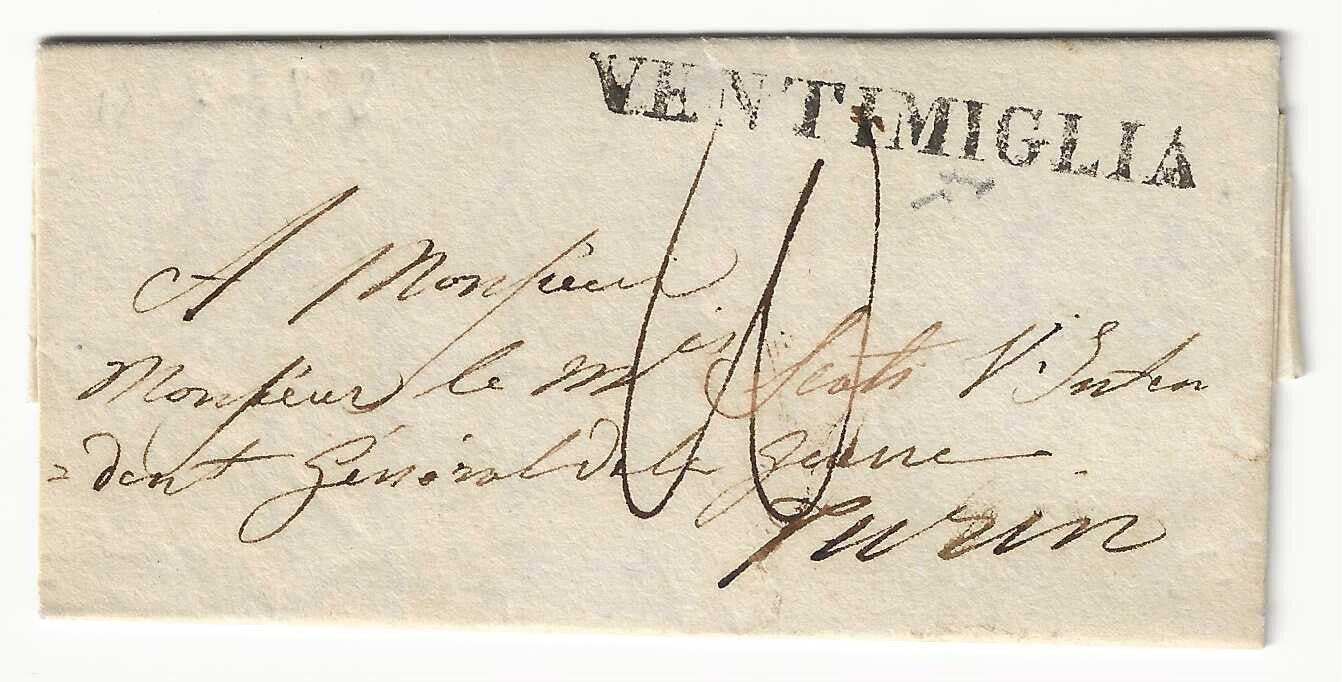 VENTIMIGLIA
A Monsieur
Monsieur le M.is Scati V. Inten
=dent Général de la Guerre
Turin